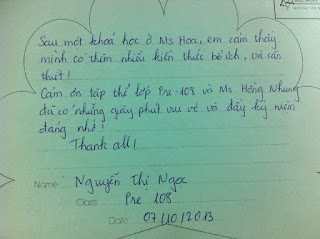 Sau một khoá học ở Ms Hoa, em cảm thấy
mình có thêm nhiều kiến thức bổ ích, và cần
thiết!
Cảm ơn tập thể lớp Pre-108 và Ms Hồng Nhung
đã có những giây phút vui vẻ và đầy kỷ niệm
đáng nhớ!
Thank all!
Name: Nguyễn Thị Ngọc
Class: Pre 108
Date: 07/10/2013